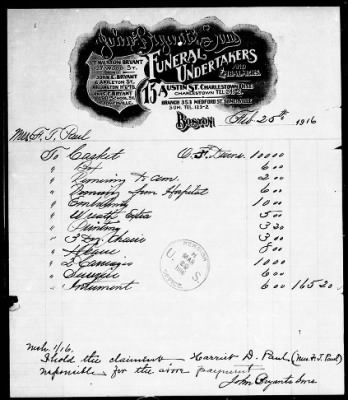 John Bryant's Sons
Funeral Undertakers
and Embalmers.
13 Austin St. Charlestown Dist.
Charlestown Tel.
Branch 353 Medford St. Somerville
Som. Tel. 123-2.
W. Alston Bryant
John E. Bryant
Arlington H'g'ts.
Boston Feb. 25th 1916
Mrs. F. J. Paul
To Casket 100 00
" Box 6 00
" Removing to cem. 2 00
" Removing from Hospital 6 00
" Embalming 10 00
" Wreath Extra 5 00
" Printing 3 20
" 3 Doz. Chairs 3 00
" Hearse 8 00
" 2 Carriages 10 00
" Services 6 00
" Interment 6 00 165 20
PENSION
U. S.
Mch. 1/16.
I hold the claimant Harriet D. Paul (Mrs. F. J. Paul)
responsible for the above payment
John Bryants Sons